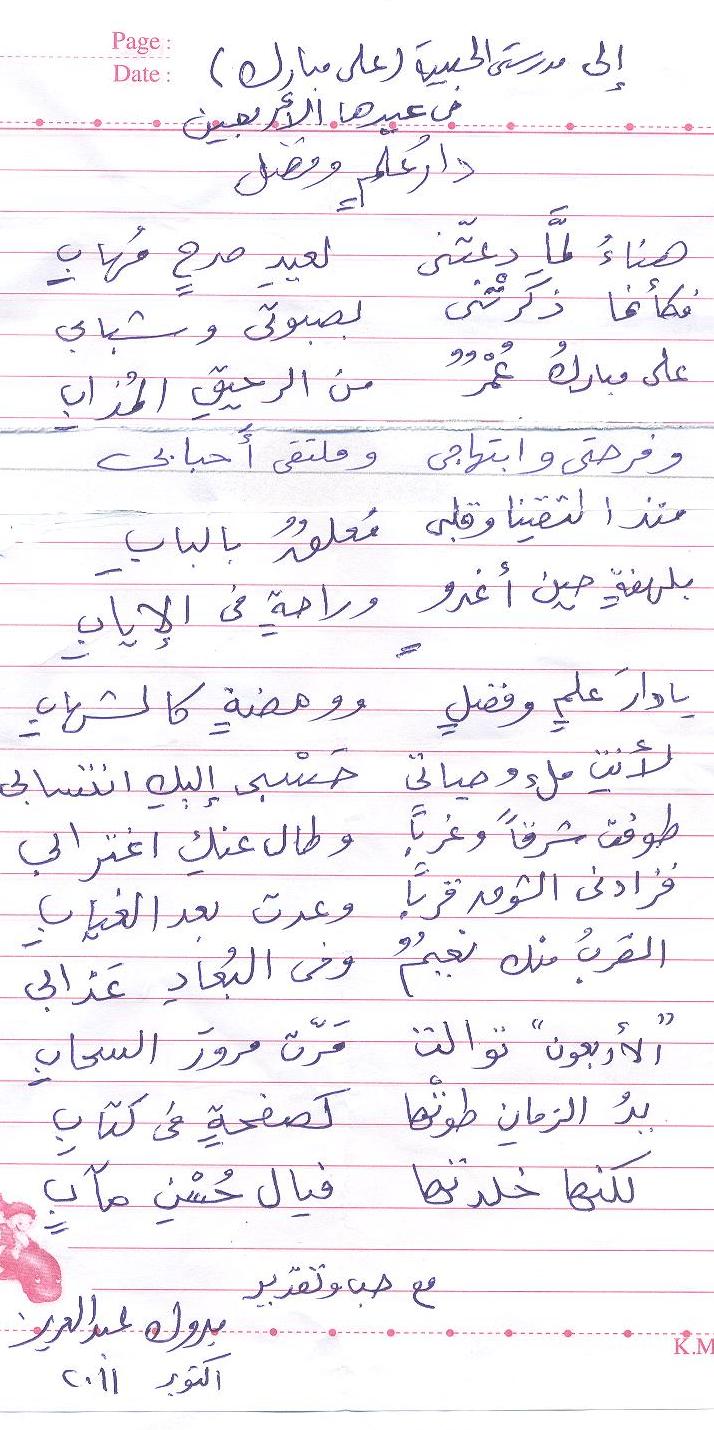 Page :
Date :
إلى مدرستى الحبيبة (على مبارك)
فى عيدها الأربعين
دار علمٍ وفضل
هناءُ لمَّا دعتْنى لعيدِ صرحٍ مُهابِ
فكأنما ذكرتْنى بصبوتى وشبابى
على مباركُ عُمْرٌ من الرحيقِ المُذابِ
وفرحتى وابتهاجى وملتقى أَحبابى
منذ التقينا وقلبى مُعلقٌ بالبابِ
بلهفةٍ حين أغدو وراحةٍ فى الإيابِ
يا دارَ علمٍ وفضلٍ وومضةٍ كالشهابِ
لأنتِ ملء حياتى حَسْبى إليكِ انتسابى
طوفت شرقاً وغرباً وطال عنكِ اغترابى
فزادنى الشوق قرباً وعدت بعد الغيابِ
القربُ منك نعيمٌ وفى البُعادِ عَذابى
"الأربعون" توالت مَرّت مرورَ السحابِ
يدُ الزمانِ طوتْها كصفحةٍ فى كتابِ
لكنها خلدتها فيال حُسْنِ مآبٍ
مع حب وتقدير
مبروك عبدالعزيز
أكتوبر ٢٠١١
K.M